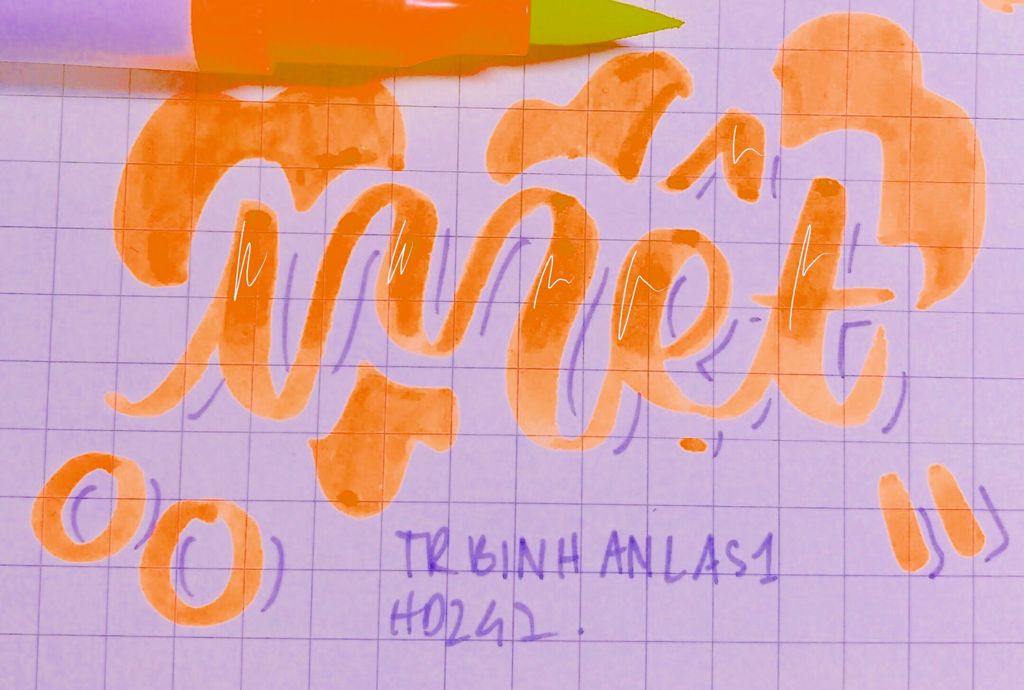 mệt
TR BINH AN LAS1
HD2G2.